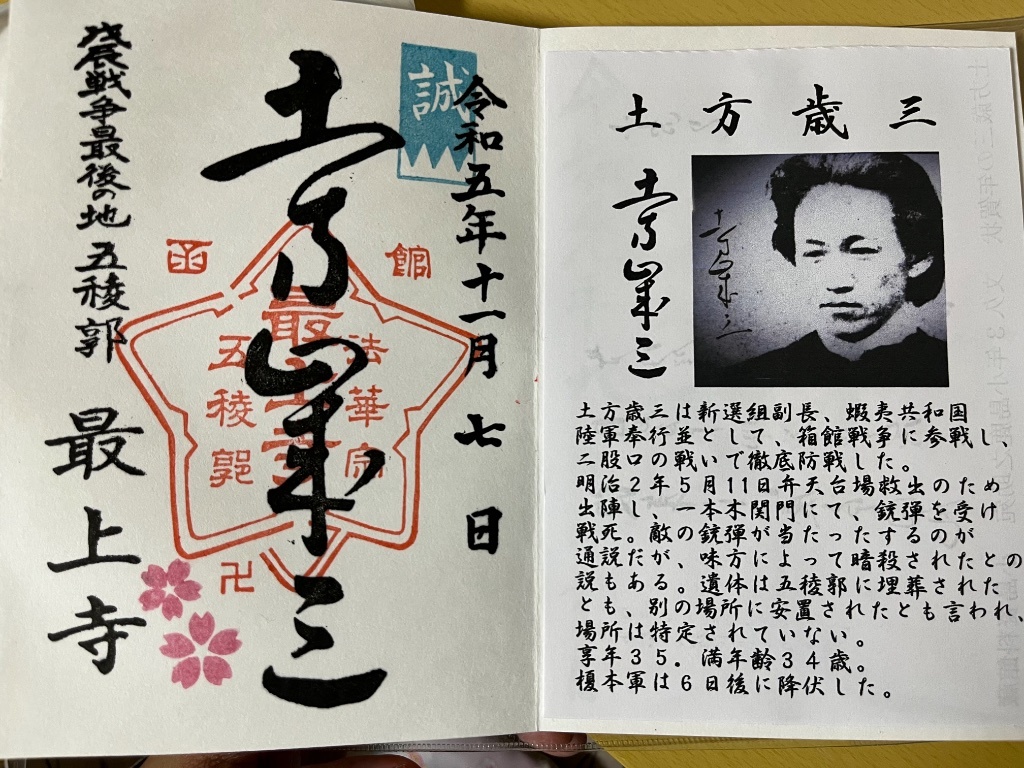 誠
令和五年十一月七日
土方歳三
函館
法華宗
最上寺
五稜郭
卍
戊辰戦争最後の地 五稜郭
最上寺
土方歳三
土方歳三
土方歳三
土方歳三は新選組副長、蝦夷共和国
陸軍奉行並として、箱館戦争に参戦し、
二股口の戦いで徹底防戦した。
明治2年5月11日弁天台場救出のため
出陣し、一本木関門にて、銃弾を受け
戦死。敵の銃弾が当たったするのが
通説だが、味方によって暗殺されたとの
説もある。遺体は五稜郭に埋葬された
とも、別の場所に安置されたとも言われ、
場所は特定されていない。
享年35．満年齢34歳。
榎本軍は6日後に降伏した。